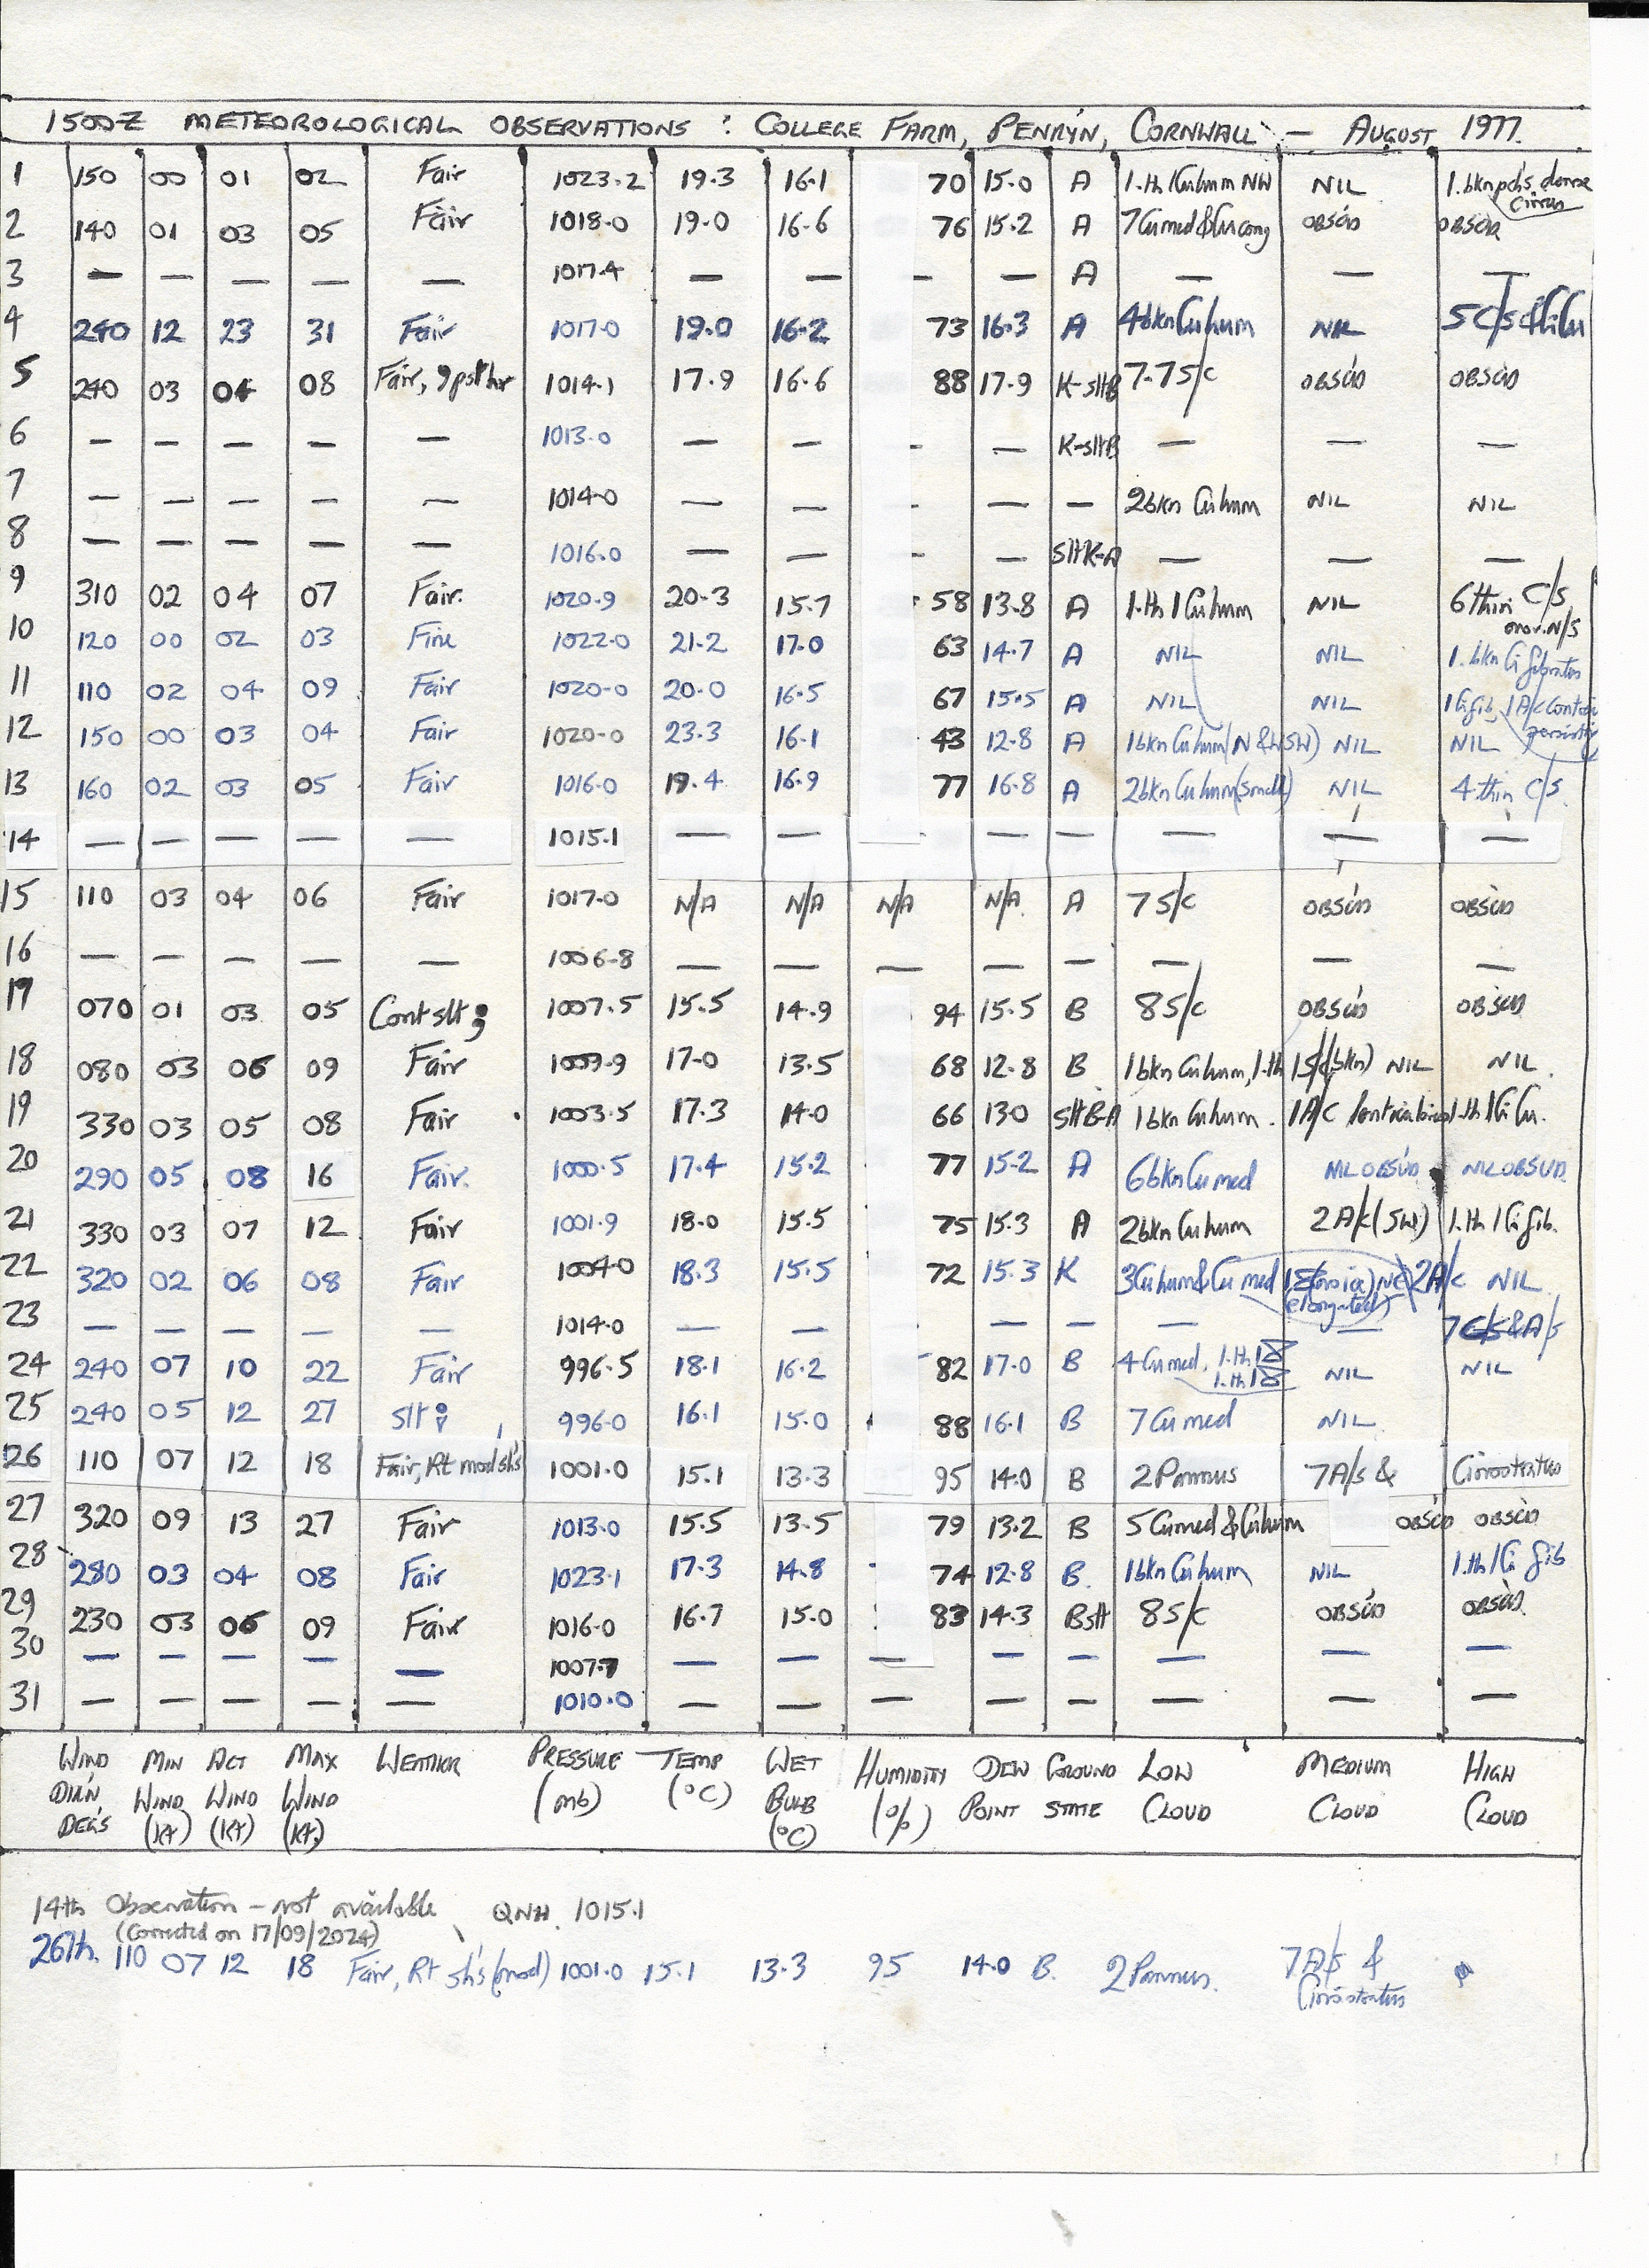 1500Z METEOROLOGICAL OBSERVATIONS : COLLEGE FARM, PENRYN, CORNWALL :- AUGUST 1977.
1 150 00 01 02 Fair 1023.2 19.3 16.1 70 15.0 A 1.th 1Cuhum NW NIL 1.bkn pch's dense cirrus
2 140 01 03 05 Fair 1018.0 19.0 16.6 76 15.2 A 7Cumed&Cucong OBSC'D OBSC'D
3 — — — — — 1017.4 — — — — A — — —
4 240 12 23 31 Fair 1017.0 19.0 16.2 73 16.3 A 4bknCuhum NIL 5C/s
5 240 03 04 08 Fair, 1014.1 17.9 16.6 88 17.9 K-sltB 7.7S/c OBSC'D OBSC'D
6 — — — — — 1013.0 — — - — K-sltB — — —
7 — — — — — 1014.0 — — - — — 2bkn Cuhum NIL NIL
8 — — — — — 1016.0 — — - — SltK-A — — —
9 310 02 04 07 Fair. 1020.9 20.3 15.7 58 13.8 A 1.th 1Cuhum NIL 6thin C/S
10 120 00 02 03 Fine 1022.0 21.2 17.0 63 14.7 A NIL NIL 1.bkn Ci fibratus
11 110 02 04 09 Fair 1020.0 20.0 16.5 67 15.5 A NIL NIL 1Cifib, 1A/c
12 150 00 03 04 Fair 1020.0 23.3 16.1 43 12.8 A 1bknCuhum(N&WSW) NIL NIL
13 160 02 03 05 Fair 1016.0 19.4 16.9 77 16.8 A 2bknCuhum(small) NIL 4thin C/S.
14 — — — — — 1015.1 — — — — — — —
15 110 03 04 06 Fair 1017.0 N/A N/A N/A N/A A 7S/c OBSC'D OBSC'D
16 — — — — — 1006.8 — — — — — — — —
17 070 01 03 05 Cont slt 1007.5 15.5 14.9 94 15.5 B 8S/c OBSC'D OBSC'D
18 080 03 06 09 Fair 1009.9 17.0 13.5 68 12.8 B 1bknCuhum, 1.th 1S/c(bkn) NIL NIL.
19 330 03 05 08 Fair 1003.5 17.3 14.0 66 130 SltB-A 1bknCuhum. 1A/C 1.th 1CiCu.
20 290 05 08 16 Fair. 1000.5 17.4 15.2 77 15.2 A 6bknCumed NILOBSC'D NILOBSC'D
21 330 03 07 12 Fair 1001.9 18.0 15.5 75 15.3 A 2bknCuhum 2A/c(SW) 1.th 1Cifib.
22 320 02 06 08 Fair 1004.0 18.3 15.5 72 15.3 K 3Cuhum&Cumed 2A/c NIL
23 — — — — — 1014.0 — — — — — — 7C/s&A/s
24 240 07 10 22 Fair 996.5 18.1 16.2 82 17.0 B 4Cumed, NIL NIL
25 240 05 12 27 Slt 996.0 16.1 15.0 88 16.1 B 7Cumed NIL
26 110 07 12 18 Fair, Rt mod sh's 1001.0 15.1 13.3 95 14.0 B 2Pannus 7A/s & Cirrostratus
27 320 09 13 27 Fair 1013.0 15.5 13.5 79 13.2 B 5Cumed&Cuhum OBSC'D OBSC'D
28 280 03 04 08 Fair 1023.1 17.3 14.8 74 12.8 B. 1bknCuhum NIL 1.th 1Ci fib
29 230 03 06 09 Fair 1016.0 16.7 15.0 83 14.3 Bslt 8S/c OBSC'D OBSC'D.
30 — — — — — 1007.7 — — — — — — — —
31 — — — — — 1010.0 — — — — — — — —
WIND MIN ACT MAX WEATHER PRESSURE TEMP WET HUMIDITY DEW GROUND LOW MEDIUM HIGH
DIR'N WIND WIND WIND (mb) (°C) BULB (%) POINT STATE CLOUD CLOUD CLOUD
DEG'S (Kt) (Kt) (Kt) (°C)
14th Observation - not available QNH 1015.1
(Corrected on 17/09/2024)
26th. 110 07 12 18 Fair, Rt sh's (mod) 1001.0 15.1 13.3 95 14.0 B. 2Pannus. 7A/s &
Cirrostratus